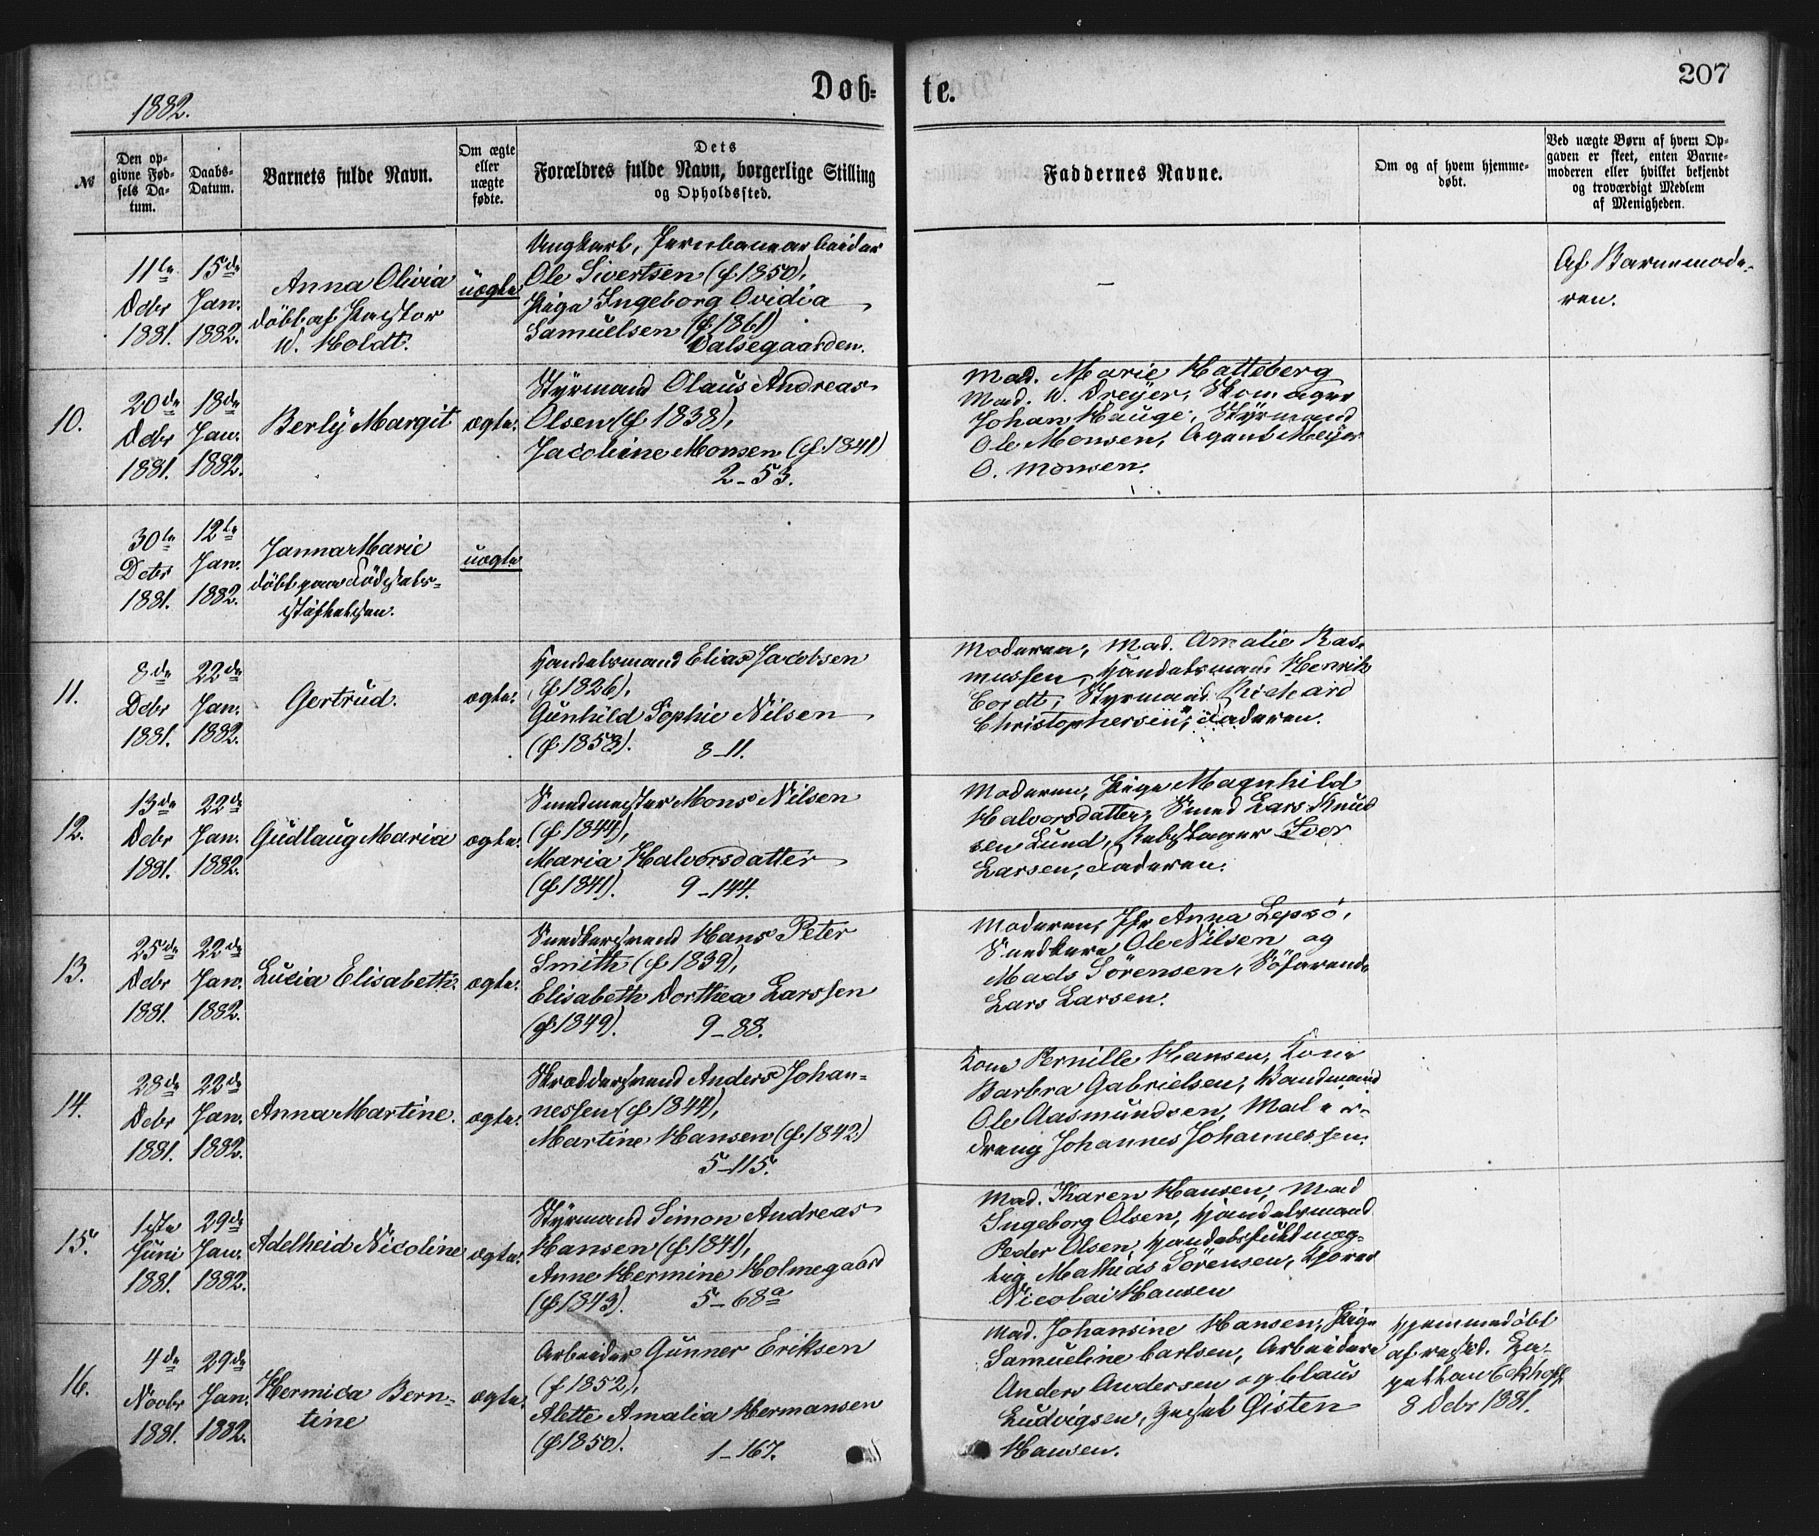 207
Døb-
te.
1882.
№
Den op-
givne Fød-
sels Da-
tum.
Daabs-
Datum.
Barnets fulde Navn.
Om ægte
eller
uægte
fødte.
Dets
Forældres fulde Navn, borgerlige Stilling
og Opholdssted.
Faddernes Navne.
Om og af hvem hjemme-
døbt.
Ved uægte Børn af hvem Op-
gaven er skeet, enten Barne-
moderen eller hvilket bekjendt
og troværdigt Medlem
af Menigheden.
11te
Dcbr
1881.
15de
Jan.
1882.
Anna Olivia
döbt af Pastor
W. Holdt.
uægte
Ungkarl, Jernbanearbeider
Ole Sivertsen (f. 1850),
Pige Ingeborg Ovidia
Samuelsen (f. 1861)
Dalsegaarden.
–
Af Barnemode-
ren.
10.
20de
Dcbr
1881.
18de
Jan.
1882.
Berly Margit
ægte.
Styrmand Olaus Andreas
Olsen (f. 1838),
Jacobine Monsen (f. 1841)
2–53.
Mad. Marie Hatteberg
Mad. W. Dreyer, Skomager
Johan Hauge, Styrmand
Ole Monsen, Agent Meyer
O. Monsen.
30te
Dcbr
1881.
12te
Jan.
1882.
Janna Marie
döbt paa Födsels-
stiftelsen.
uægte
11.
8de
Dcbr
1881.
22de
Jan.
1882.
Gertrud.
ægte.
Handelsmand Elias Jacobsen
(f. 1826),
Gunhild Sophie Nilsen
(f. 1858).
8–11.
Moderen, Mad. Amalie Ras-
mussen, Handelsmand Henrik
Cordt, Styrmand Richard
Christophersen, Faderen.
12.
13de
Dcbr
1881.
22de
Jan.
1882.
Gudlaug Maria
ægte.
Smedmester Mons Nilsen
(f. 1844),
Maria Halvorsdatter
(f. 1841).
9–144.
Moderen, Pige Magnhild
Halvorsdatter, Smed Lars Knud
sen Lund, Rebslager Iver
Larsen, Faderen.
13.
25de
Dcbr
1881.
22de
Jan.
1882.
Lucia Elisabeth.
ægte.
Snedkersvend Hans Peter
Smith (f. 1839),
Elisabeth Dorthea Larssen
(f. 1849).
9–88.
Moderen, Jfr Anna Lepsö,
Snedkere Ole Nilsen og
Mads Sörensen, Söfarende
Lars Larsen.
14.
28de
Dcbr
1881.
22de
Jan.
1882.
Anna Martine.
ægte.
Skræddersvend Anders Johan-
nessen (f. 1844),
Martine Hansen (f. 1842)
5–115.
Kone Pernille Hansen, Kone
Barbra Gabrielsen, Bandmand
Ole Aasmundsen, Maler-
dreng Johannes Johannessen.
15.
1ste
Juni
1881.
29de
Jan.
1882.
Adelheid Nicoline
ægte.
Styrmand Simon Andreas
Hansen (f. 1841),
Anne Hermine Holmegaard
(f. 1843).
5–68a
Mad. Karen Hansen, Mad
Ingeborg Olsen, Handelsmand
Peder Olsen, Handelsfuldmæg-
tig Mathias Sörensen,
Nicolai Hansen
16.
4de
Novbr
1881.
29de
Jan.
1882.
Hermica Bern-
tine
ægte.
Arbeider Gunner Eriksen
(f. 1852),
Alette Amalia Hermansen
(f. 1850).
1–167.
Mad. Johansine Hansen, Pige
Samueline Carlsen, Arbeidere
Anders Andersen og Claus
Ludvigsen, Gesel Øisten
Hansen.
Hjemmedöbt
af resid. Ka-
pellan Eckhoff
8 Dcbr 1881.